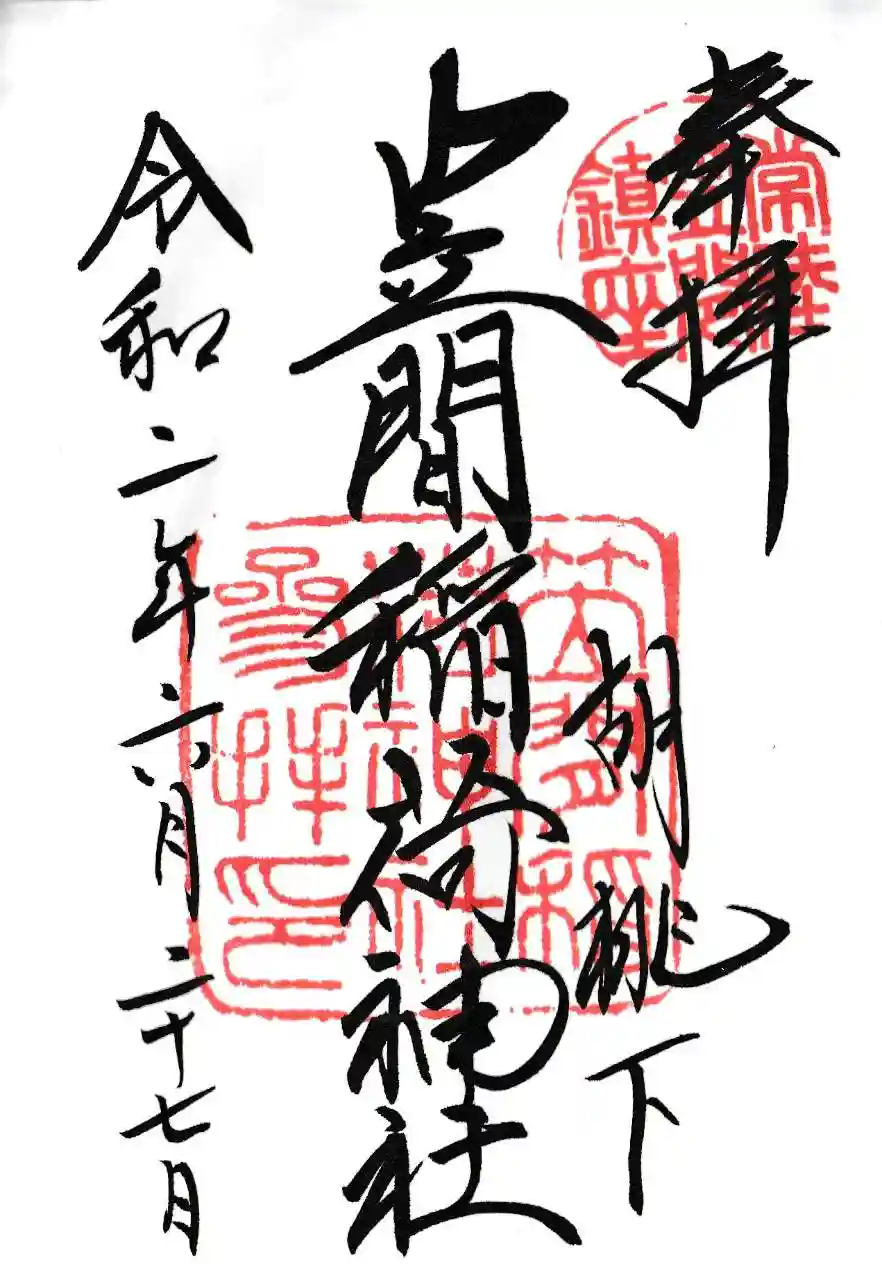 奉拝
常陸
笠間
鎮座
胡桃下
笠間稲荷神社
令和二年六月二十七日